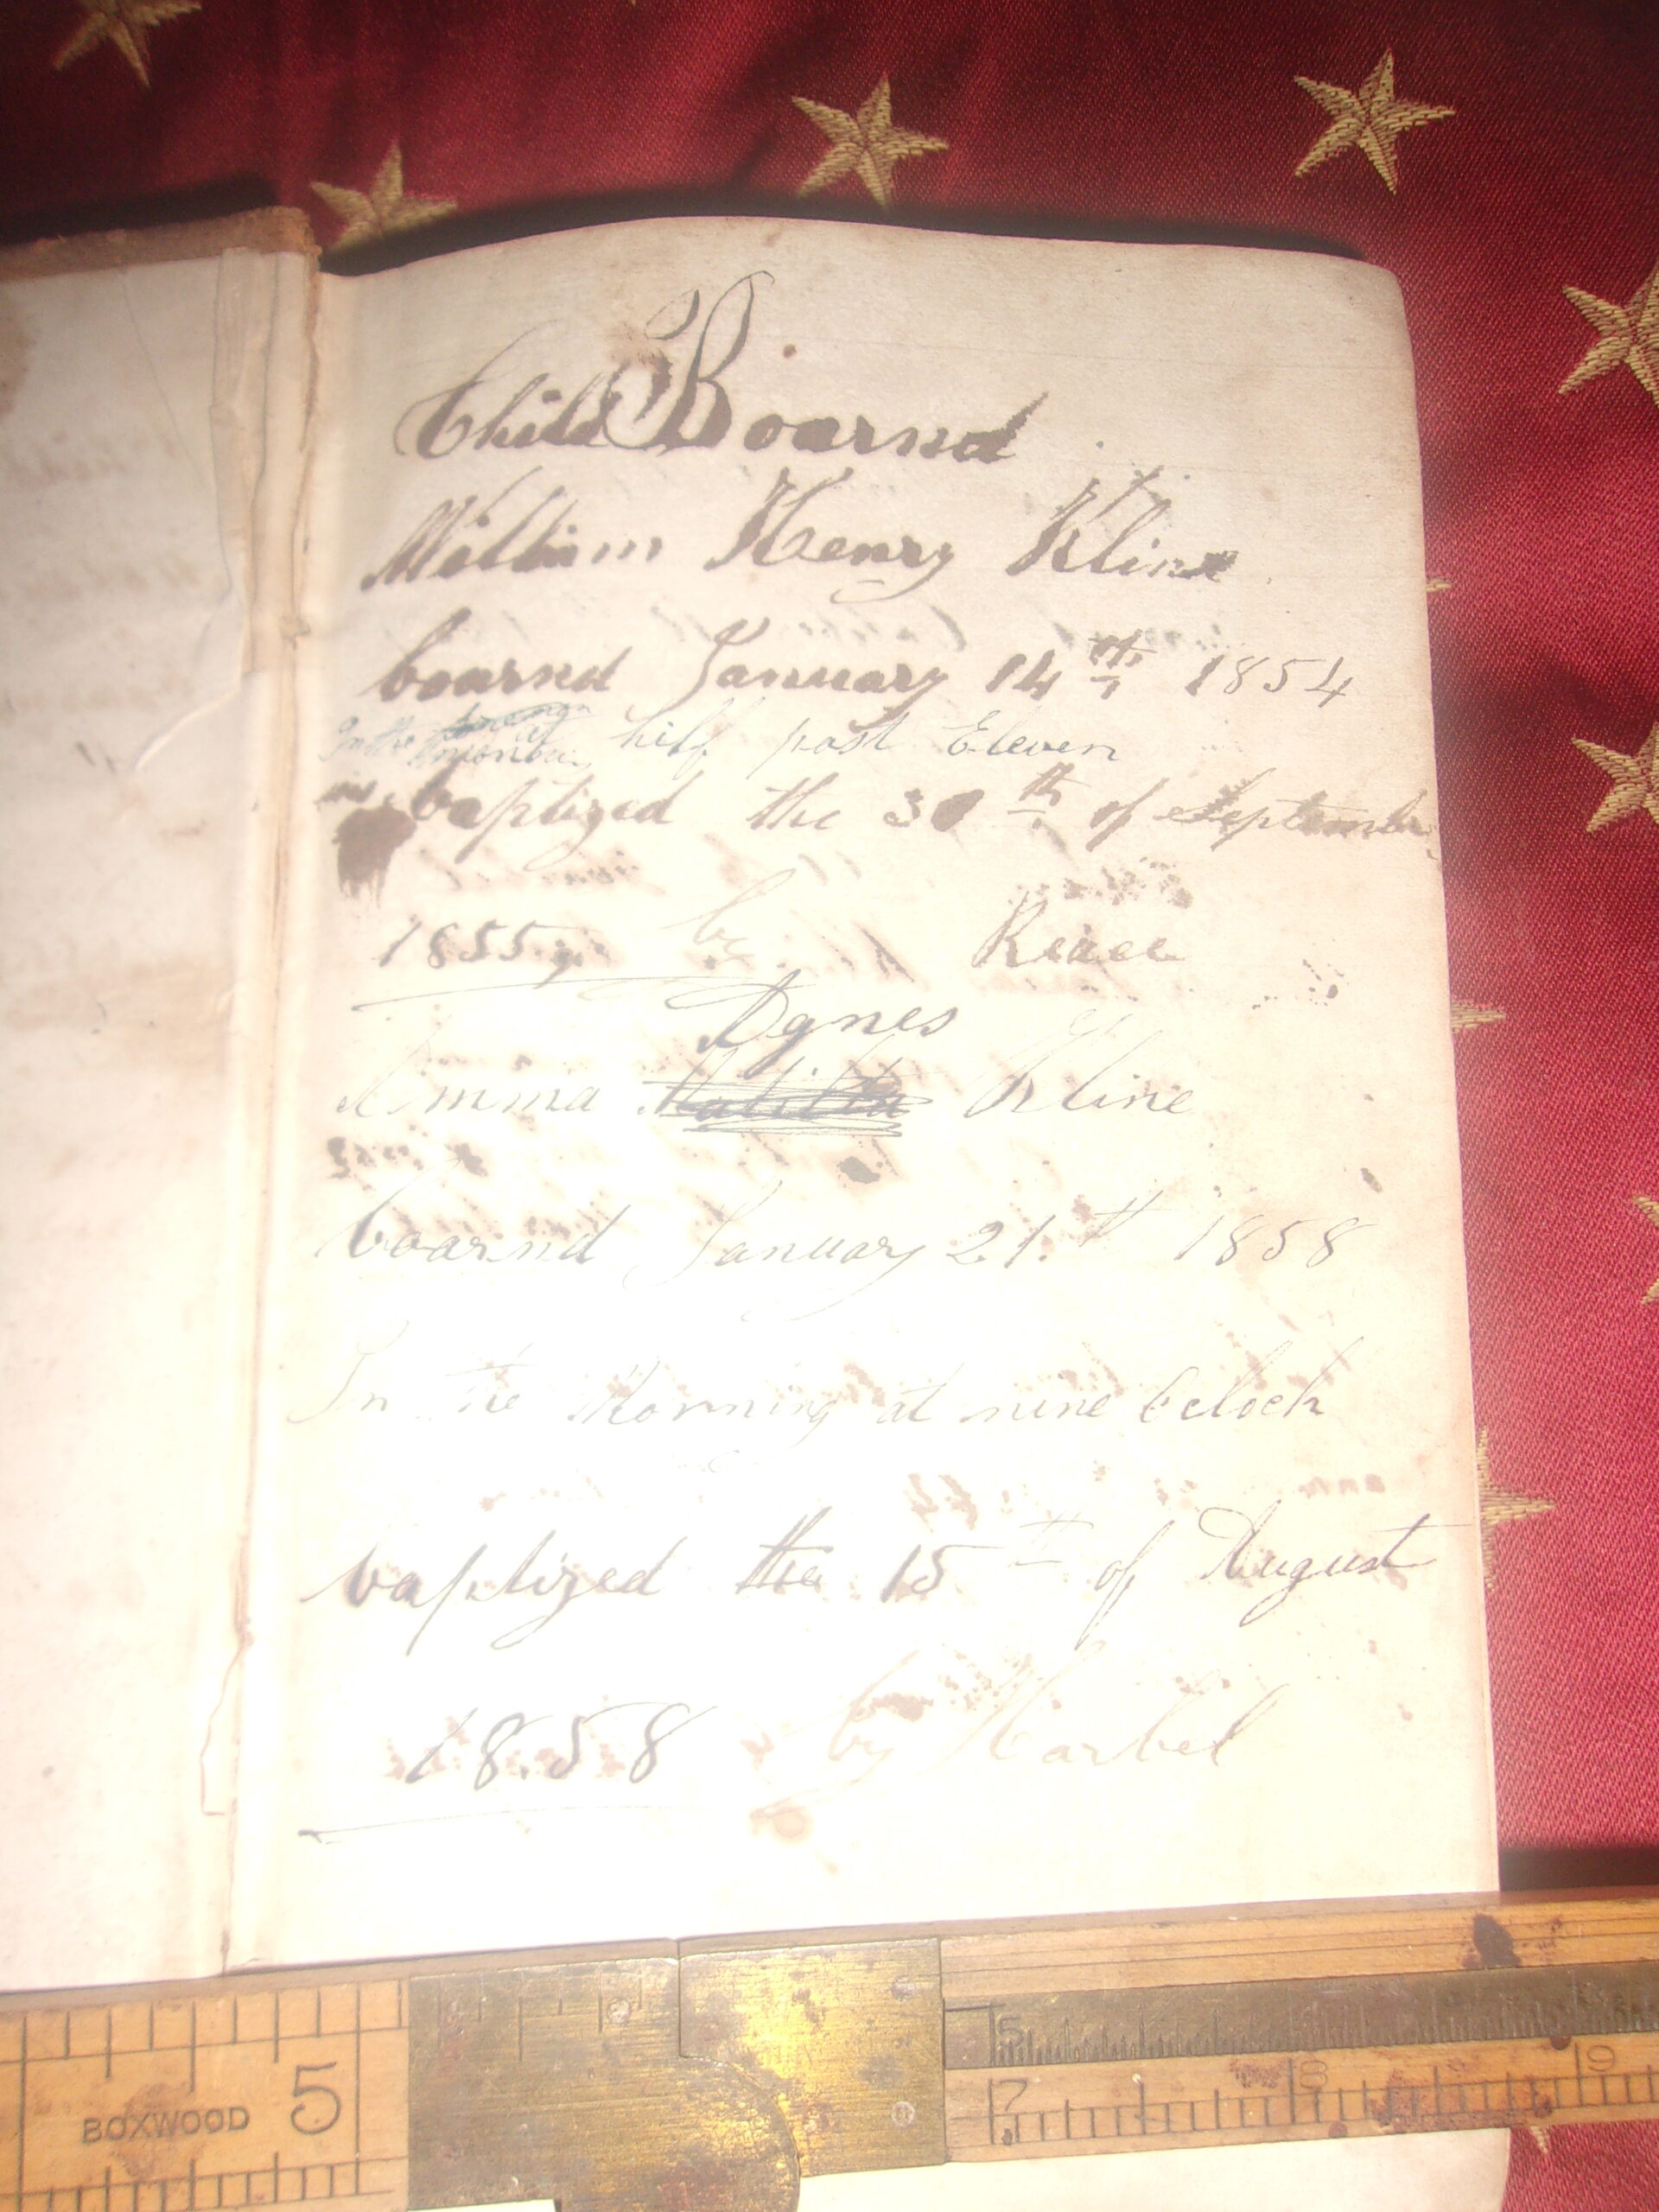 Child Boarnd
William Henry Kline
boarnd January 14th 1854
In the morning at hilf past Eleven
baptized the 30th of September
1855 by
Agnes
Emma Matilda Kline
boarnd January 21.th 1858
In the Morning at nine Oclock
baptized the 15th of August
1858 by Harbel
BOXWOOD 5
7 8 9